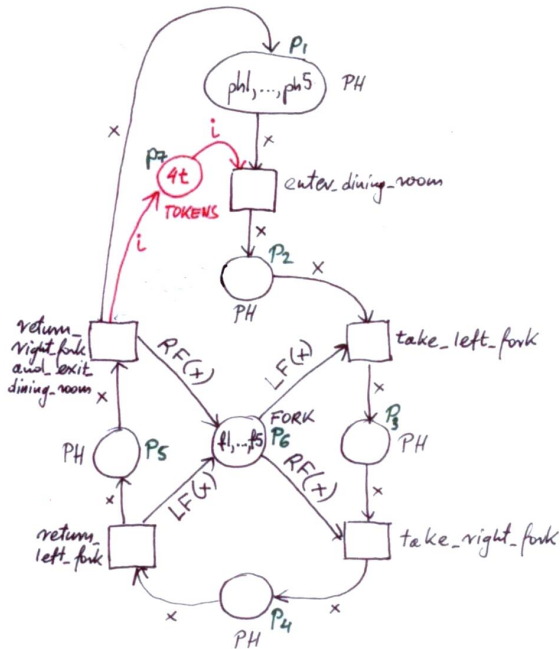 P1
ph1,...,ph5
PH
x
i
P7
4t
TOKENS
x
enter_dining_room
i
x
P2
x
PH
return_
right_fork
and_exit_
dining_room
RF(x)
LF(x)
take_left_fork
x
x
FORK
f1,..,f5
P6
P3
PH
PH
P5
x
LF(x)
RF(x)
x
return_
left_fork
take_right_fork
x
P4
x
PH